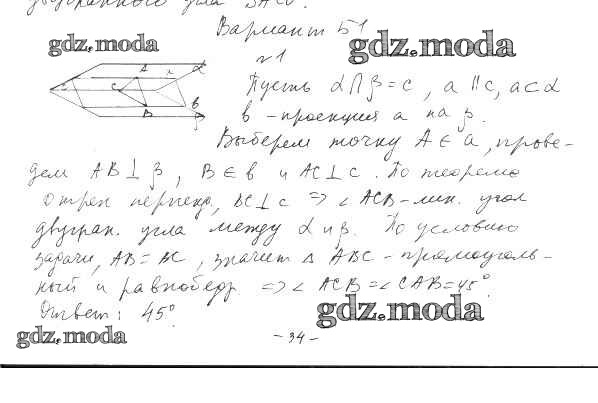 двугранного угла SACD.
Вариант 51
gdz.moda
gdz.moda
№1
A a α
c C
B b β
Пусть α∩β=c, a∥c, a⊂α
b - проекция a на β.
Выберем точку A∈a, прове-
дем AB⊥β, B∈b и AC⊥c. По теореме
о трех перпенд. BC⊥c ⇒ ∠ACB - лин. угол
двугран. угла между α и β. По условию
задачи, AB=BC, значит Δ ABC - прямоуголь-
ный и равнобедр. ⇒ ∠ACB=∠CAB=45°
Ответ: 45°.
gdz.moda
gdz.moda
- 34 -